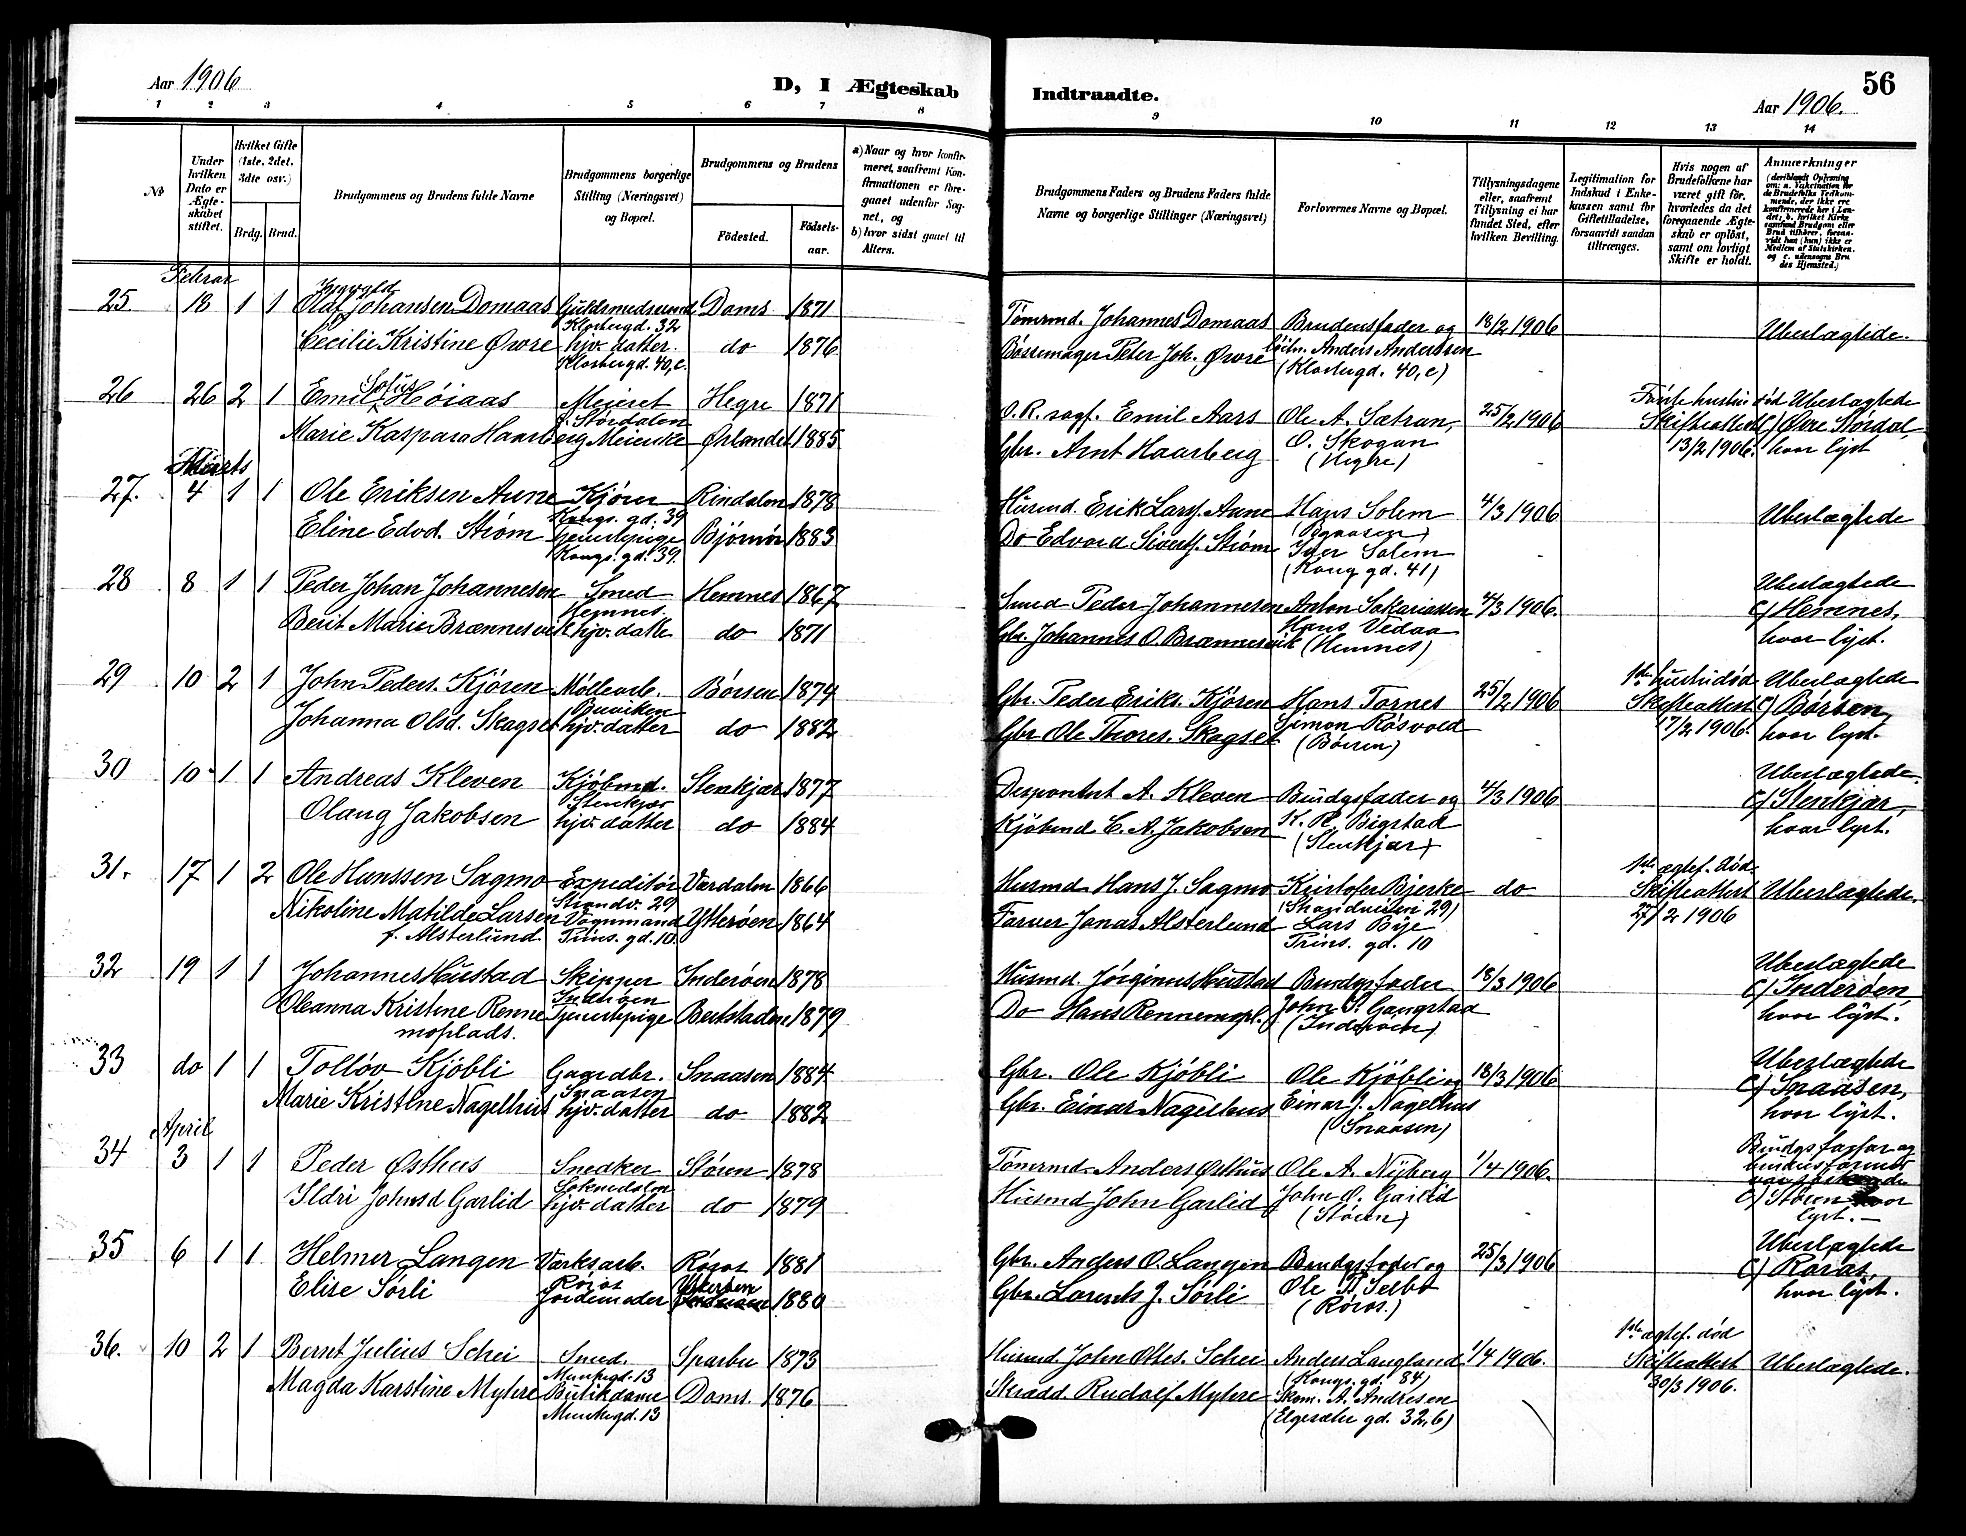 Aar 1906
D, I Ægteskab
Indtraadte.
Aar 1906.
56
1 2 3 4 5 6 7 8 9 10 11 12 13 14
No
Under hvilken Dato er Ægteskabet stiftet.
Hvilket Gifte (1ste, 2det, 3die osv.)
Brdg. Brud.
Brudgommens og Brudens fulde Navne
Brudgommens borgerlige Stilling (Næringsvei) og Bopæl.
Brudgommens og Brudens
Fødested.
Fødselsaar.
a) Naar og hvor konfirmeret, saafremt Konfirmationen er foregaaet udenfor Sognet, og
b) hvor sidst gaaet til Alters.
Brudgommens Faders og Brudens Faders fulde Navne og borgerlige Stillinger (Næringsvei)
Forlovernes Navne og Bopæl.
Tillysningsdagene eller, saafremt Tillysning ei har fundet Sted, efter hvilken Bevilling.
Legitimation for Indskud i Enkekassen samt for Giftetilladelse, forsaavidt saadan tiltrænges.
Hvis nogen af Brudefolkene har været gift før, hvorledes da det foregaaende Ægteskab er opløst, samt om lovligt Skifte er holdt.
Anmærkninger
Februar
25 18 1 1 Olaf Ingvald Johansen Domaas Guldsmedsvend Doms 1871
Klostergd. 32
Cecilie Kristine Øvre hjv. datter. do 1876
Klostergd. 40, c.
Tømrmd. Johannes Domaas Brudens fader og 18/2 1906 Uberlægtede.
Børsemager Peter Joh. Øvre Anders Anderssen
(Klostergd. 40, c)
26 26 2 1 Emil Sofus Høiaas Meieret Hegre 1871
Størdalen
Marie Kaspara Haarberg Meierske Ørlandet 1885
O. R. sagf. Emil Aars Ole A. Sætran, 25/2 1906 hustru død Uberlægtede
Gbr. Arnt Haarberg O. Skogan Skifteattest Øvre Størdal,
(Hegre) 13/2 1906. hvor lyst
Marts
27. 4 1 1 Ole Eriksen Aune Kjører Rindalen 1878
Kongs. gd. 39
Eline Edvd. Strøm tjenestepige Bjørnør 1883
Kongs. gd. 39.
Husmd. Erik Lars. Aune Hans Solem 4/3 1906 Uberlægtede
Do Edvard Siverts. Strøm Iver Solem
(Kong gd. 41)
28 8 1 1 Peder Johan Johannesen Smed Hemnes 1867
Hemnes.
Berit Marie Brænnesvik hjv. datter do 1871
Smed Peder Johannesen Anton Sakariassen 4/3 1906. Uberlægtede
Gbr. Johannes O. Brænnesvik Hans Vedaa c) Hemnes,
(Hemnes) hvor lyst.
29 10 2 1 John Peders. Kjøren Møllearb. Børsen 1874
Buviken
Johanna Olsd. Skagset hjv. datter do 1882
Gbr. Peder Eriks. Kjøren Hans Tornes 25/2 1906 1ste hustru død Uberlægtede
Gbr Ole Thores. Skagset Simon Røsvold Skifteattest c) Børsen,
(Børsen) 17/2 1906. hvor lyst.
30 10 1 1 Andreas Kleven Kjøbmd. Stenkjær 1877
Stenkjær
Olaug Jakobsen hjv. datter do 1884
Disponent A. Kleven Brudgsfader og 4/3 1906 Uberlægtede
Kjøbmd C. A. Jakobsen K. H. Bigstad c) Stenkjær,
(Stenkjær) hvor lyst.
31. 17 1 2 Ole Hanssen Sagmo Expeditør Værdalen 1866
Strandv. 29
Nikoline Matilde Larsen Vognmand Ytterøen 1864
f. Alsterlund. Prins. gd. 10.
Husmd Hans J. Sagmo Kristofer Bjerke do 1ste ægtef. død.
(Strandveien 29) Skifteattest Uberlægtede.
Farver Jonas Alsterlund Lars Bye 27/2 1906
Prins. gd. 10
32 19 1 1 Johannes Hustad Skipper Inderøen 1878
Inderøen
Oleanna Kristine Renne Tjenestepige Beitstaden 1879
moplads.
Husmd. Jørginus Hustad Brudgsfader 18/3 1906 Uberlægtede
Do Hans Rennemopl. John P. Gangstad c) Inderøen,
(Inderøen) hvor lyst.
33 do 1 1 Tolløv Kjøbli Gaardbr. Snaasen 1884
Snaasen
Marie Kristine Nagelhus hjv. datter do 1882
Gbr. Ole Kjøbli Ole Kjøbli 18/3 1906 Uberlægtede
Gbr. Einar Nagelhus Einar J. Nagelhus c) Snaasen,
(Snaasen) hvor lyst.
April
34 3 1 1 Peder Østhus Snedker Støren 1878
Soknedalen
Ildri Johnsd Garlid hjv. datter do 1879
Tømrmd. Anders Østhus Ole A. Nyberg 1/4 1906. Brudgs farfar og
Husmd John Garlid John O. Garlid brudens farmor
(Støren) var søskende
c) Støren hvor
lyst.
35 6 1 1 Helmer Langen Værksarb. Røros 1881
Røros
Elise Sørli Jordemoder Ytterøen 1880
Gbr. Anders O. Langen Brudgsfader og 25/3 1906 Uberlægtede
Gbr. Lorents J. Sørli Ole Selbo c) Røros,
(Røros.) hvor lyst.
36. 10 2 1 Bernt Julius Schei Smed. Sparbu 1873
Munkegd. 13
Magda Karstine Myhre Butikdame Doms. 1876
Munkegd. 13
Husmd. John Ottes. Schei Anders Langland 1/4 1906. 1ste ægtef. død
(Kongs. gd. 84) Skifteattest Uberlægtede.
Skrædd. Rudolf Myhre Skom. A. Andresen 30/3 1906.
(Elgesæter gd. 32, b)